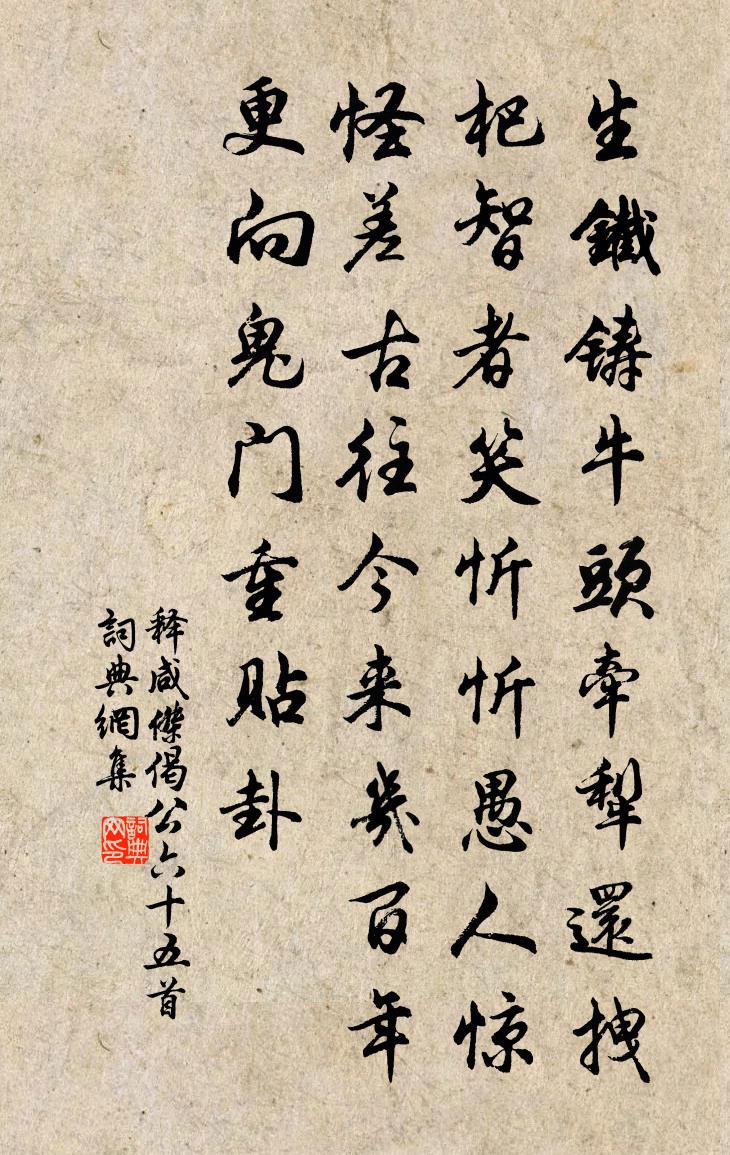 生鐵鑄牛頭牽犁還拽
杷智者笑忻忻愚人惊
怪差古往今来幾百年
更向鬼门重贴卦
释咸傑偈公六十五首
詞典網集
詞典网印